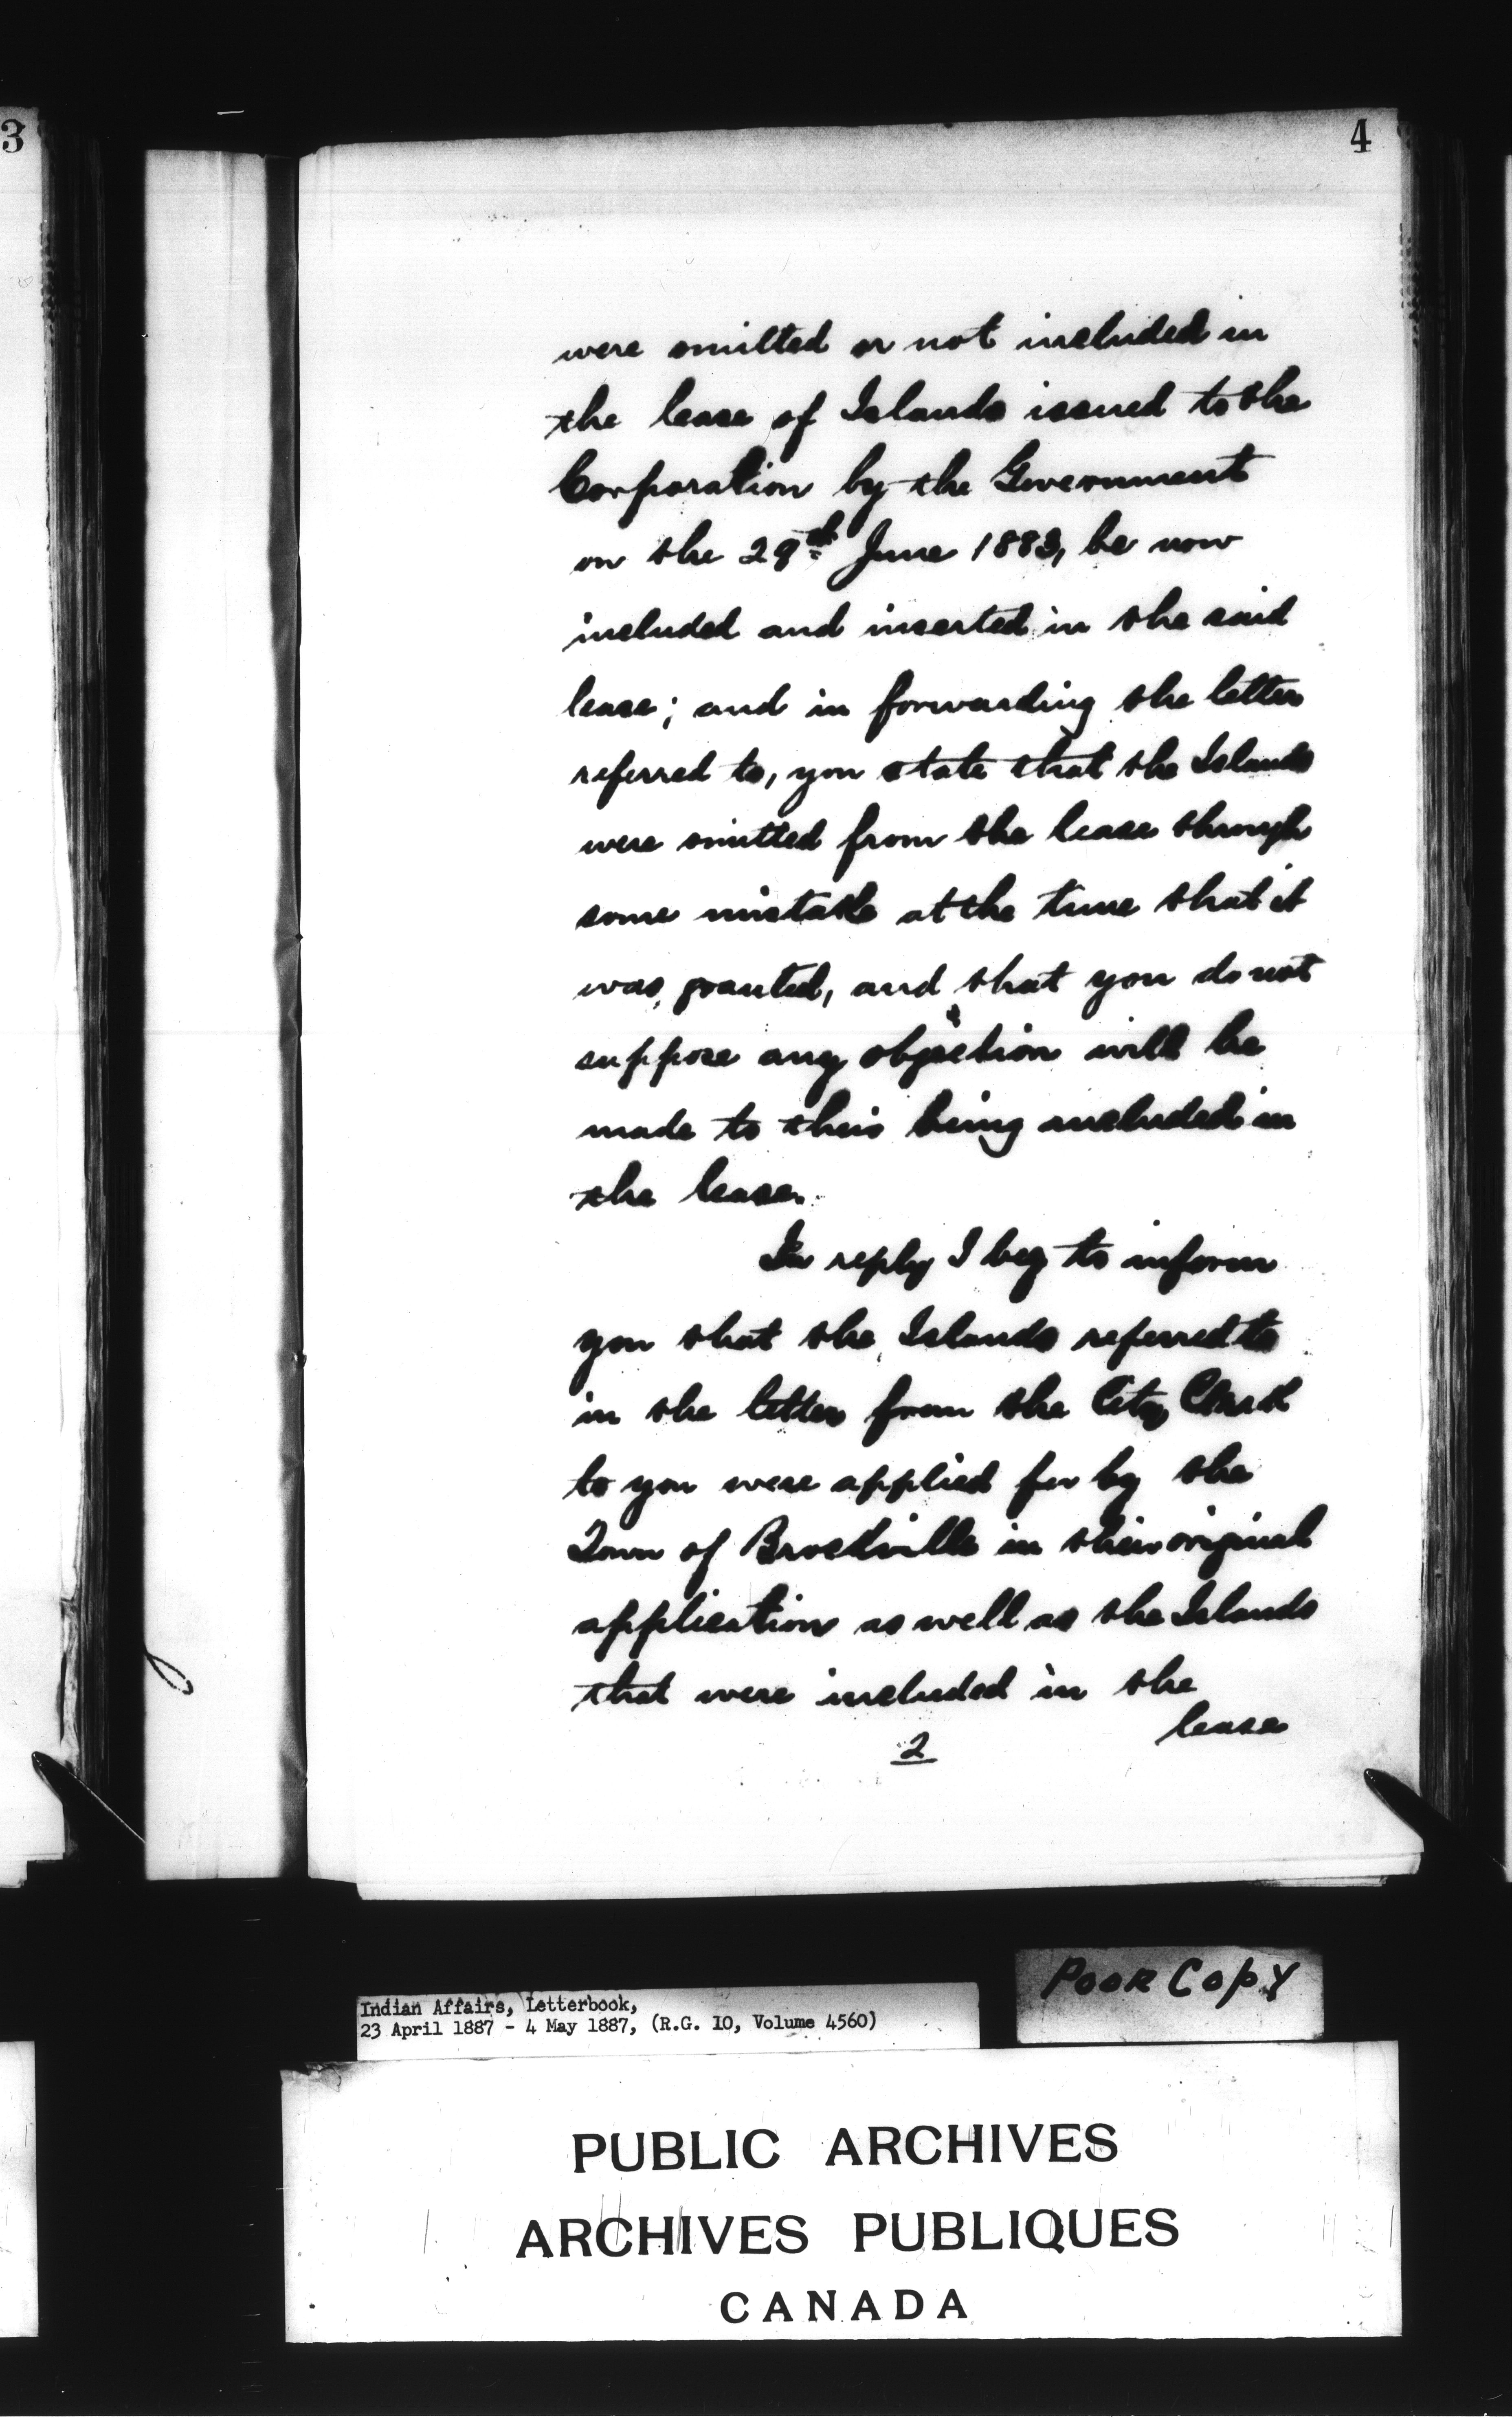 3
4
were omitted or not included in
the lease of Islands issued to the
Corporation by the Government
on the 29th June 1883, be now
included and inserted in the said
lease; and in forwarding the letter
referred to, you state that the Islands
were omitted from the lease through
some mistake at the time that it
was granted, and that you do not
suppose any objection will be
made to their being included in
the lease.
In reply I beg to inform
you that the Islands referred to
in the letter from the City Clerk
to you were applied for by the
Town of Brockville in their original
application as well as the Islands
that were included in the
lease
2
Poor Copy
Indian Affairs, Letterbook,
23 April 1887 - 4 May 1887, (R.G. 10, Volume 4560)
PUBLIC ARCHIVES
ARCHIVES PUBLIQUES
CANADA